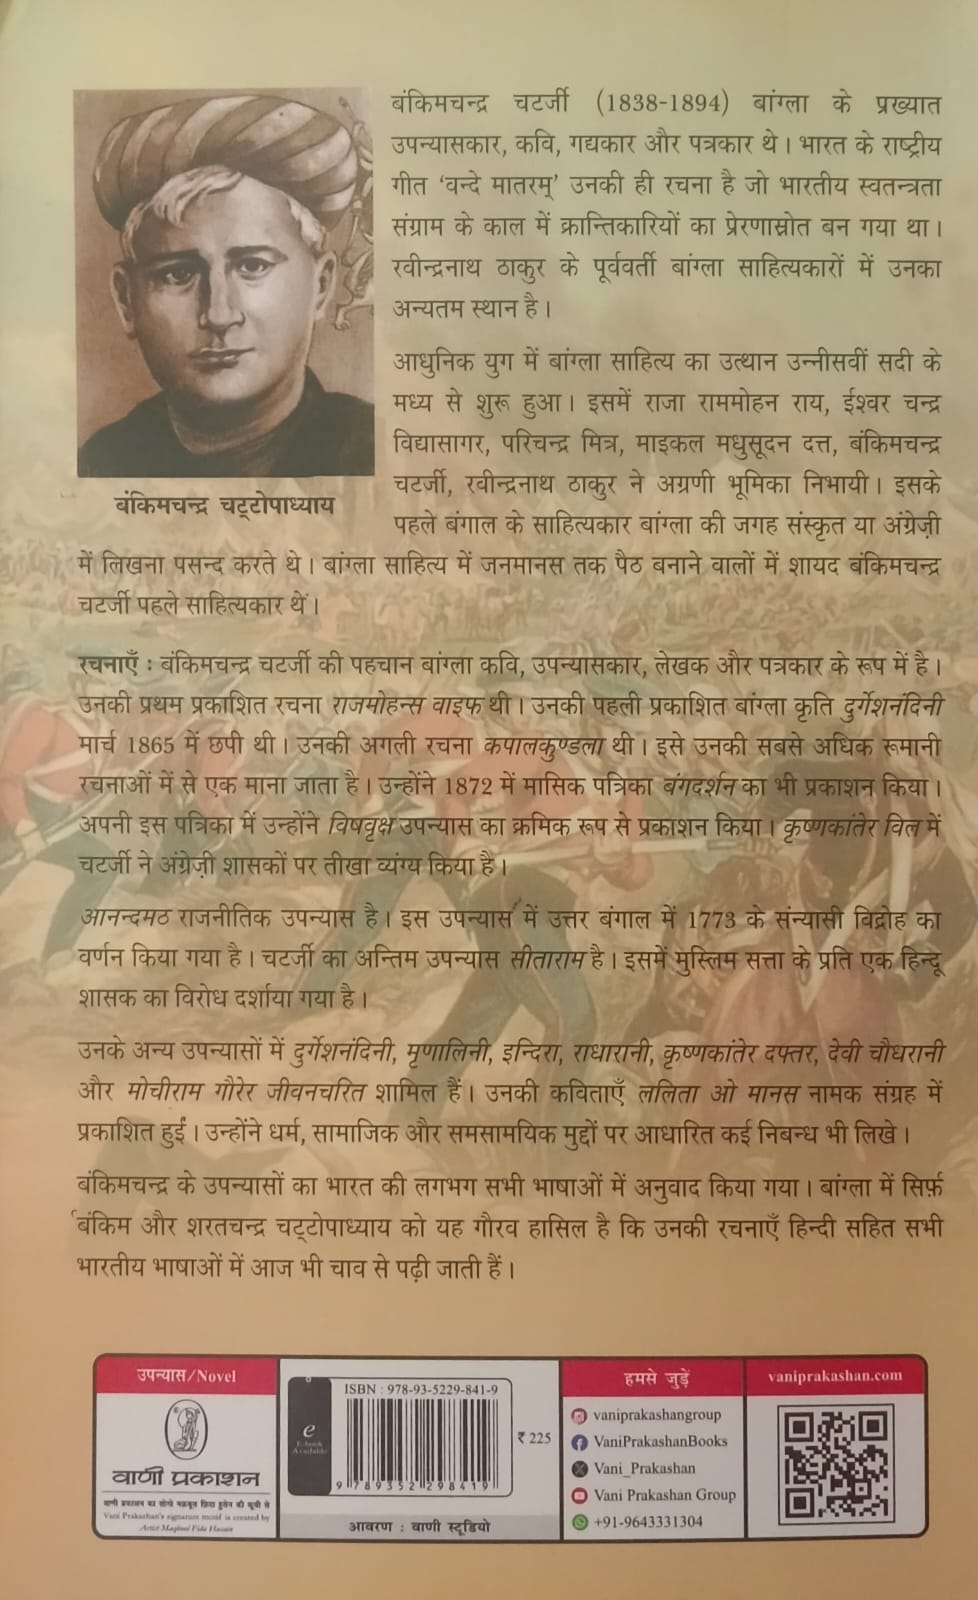 बंकिमचन्द्र चटर्जी (1838-1894) बांग्ला के प्रख्यात
उपन्यासकार, कवि, गद्यकार और पत्रकार थे। भारत के राष्ट्रीय
गीत ‘वन्दे मातरम्’ उनकी ही रचना है जो भारतीय स्वतन्त्रता
संग्राम के काल में क्रान्तिकारियों का प्रेरणास्रोत बन गया था।
रवीन्द्रनाथ ठाकुर के पूर्ववर्ती बांग्ला साहित्यकारों में उनका
अन्यतम स्थान है।
आधुनिक युग में बांग्ला साहित्य का उत्थान उन्नीसवीं सदी के
मध्य से शुरू हुआ। इसमें राजा राममोहन राय, ईश्वर चन्द्र
विद्यासागर, परिचन्द्र मित्र, माइकल मधुसूदन दत्त, बंकिमचन्द्र
चटर्जी, रवीन्द्रनाथ ठाकुर ने अग्रणी भूमिका निभायी। इसके
बंकिमचन्द्र चट्टोपाध्याय
पहले बंगाल के साहित्यकार बांग्ला की जगह संस्कृत या अंग्रेज़ी
में लिखना पसन्द करते थे। बांग्ला साहित्य में जनमानस तक पैठ बनाने वालों में शायद बंकिमचन्द्र
चटर्जी पहले साहित्यकार थे।
रचनाएँ : बंकिमचन्द्र चटर्जी की पहचान बांग्ला कवि, उपन्यासकार, लेखक और पत्रकार के रूप में है।
उनकी प्रथम प्रकाशित रचना राजमोहन्स वाइफ थी। उनकी पहली प्रकाशित बांग्ला कृति दुर्गेशनंदिनी
मार्च 1865 में छपी थी। उनकी अगली रचना कपालकुण्डला थी। इसे उनकी सबसे अधिक रूमानी
रचनाओं में से एक माना जाता है। उन्होंने 1872 में मासिक पत्रिका बंगदर्शन का भी प्रकाशन किया।
अपनी इस पत्रिका में उन्होंने विषवृक्ष उपन्यास का क्रमिक रूप से प्रकाशन किया। कृष्णकांतेर विल में
चटर्जी ने अंग्रेज़ी शासकों पर तीखा व्यंग्य किया है।
आनन्दमठ राजनीतिक उपन्यास है। इस उपन्यास में उत्तर बंगाल में 1773 के संन्यासी विद्रोह का
वर्णन किया गया है। चटर्जी का अन्तिम उपन्यास सीताराम है। इसमें मुस्लिम सत्ता के प्रति एक हिन्दू
शासक का विरोध दर्शाया गया है।
उनके अन्य उपन्यासों में दुर्गेशनंदिनी, मृणालिनी, इन्दिरा, राधारानी, कृष्णकांतेर दफ्तर, देवी चौधरानी
और मोचीराम गौरेर जीवनचरित शामिल हैं। उनकी कविताएँ ललिता ओ मानस नामक संग्रह में
प्रकाशित हुईं। उन्होंने धर्म, सामाजिक और समसामयिक मुद्दों पर आधारित कई निबन्ध भी लिखे।
बंकिमचन्द्र के उपन्यासों का भारत की लगभग सभी भाषाओं में अनुवाद किया गया। बांग्ला में सिर्फ़
बंकिम और शरतचन्द्र चट्टोपाध्याय को यह गौरव हासिल है कि उनकी रचनाएँ हिन्दी सहित सभी
भारतीय भाषाओं में आज भी चाव से पढ़ी जाती हैं।
उपन्यास/Novel
वाणी प्रकाशन
वाणी प्रकाशन का लोगो मक़बूल फ़िदा हुसेन की कूची से
Vani Prakashan's signature motif is created by
Artist Maqbool Fida Husain
e
E-book
Available
ISBN : 978-93-5229-841-9
9 789352 298419
₹ 225
आवरण : वाणी स्टूडियो
हमसे जुड़ें
vaniprakashangroup
VaniPrakashanBooks
Vani_Prakashan
Vani Prakashan Group
+91-9643331304
vaniprakashan.com